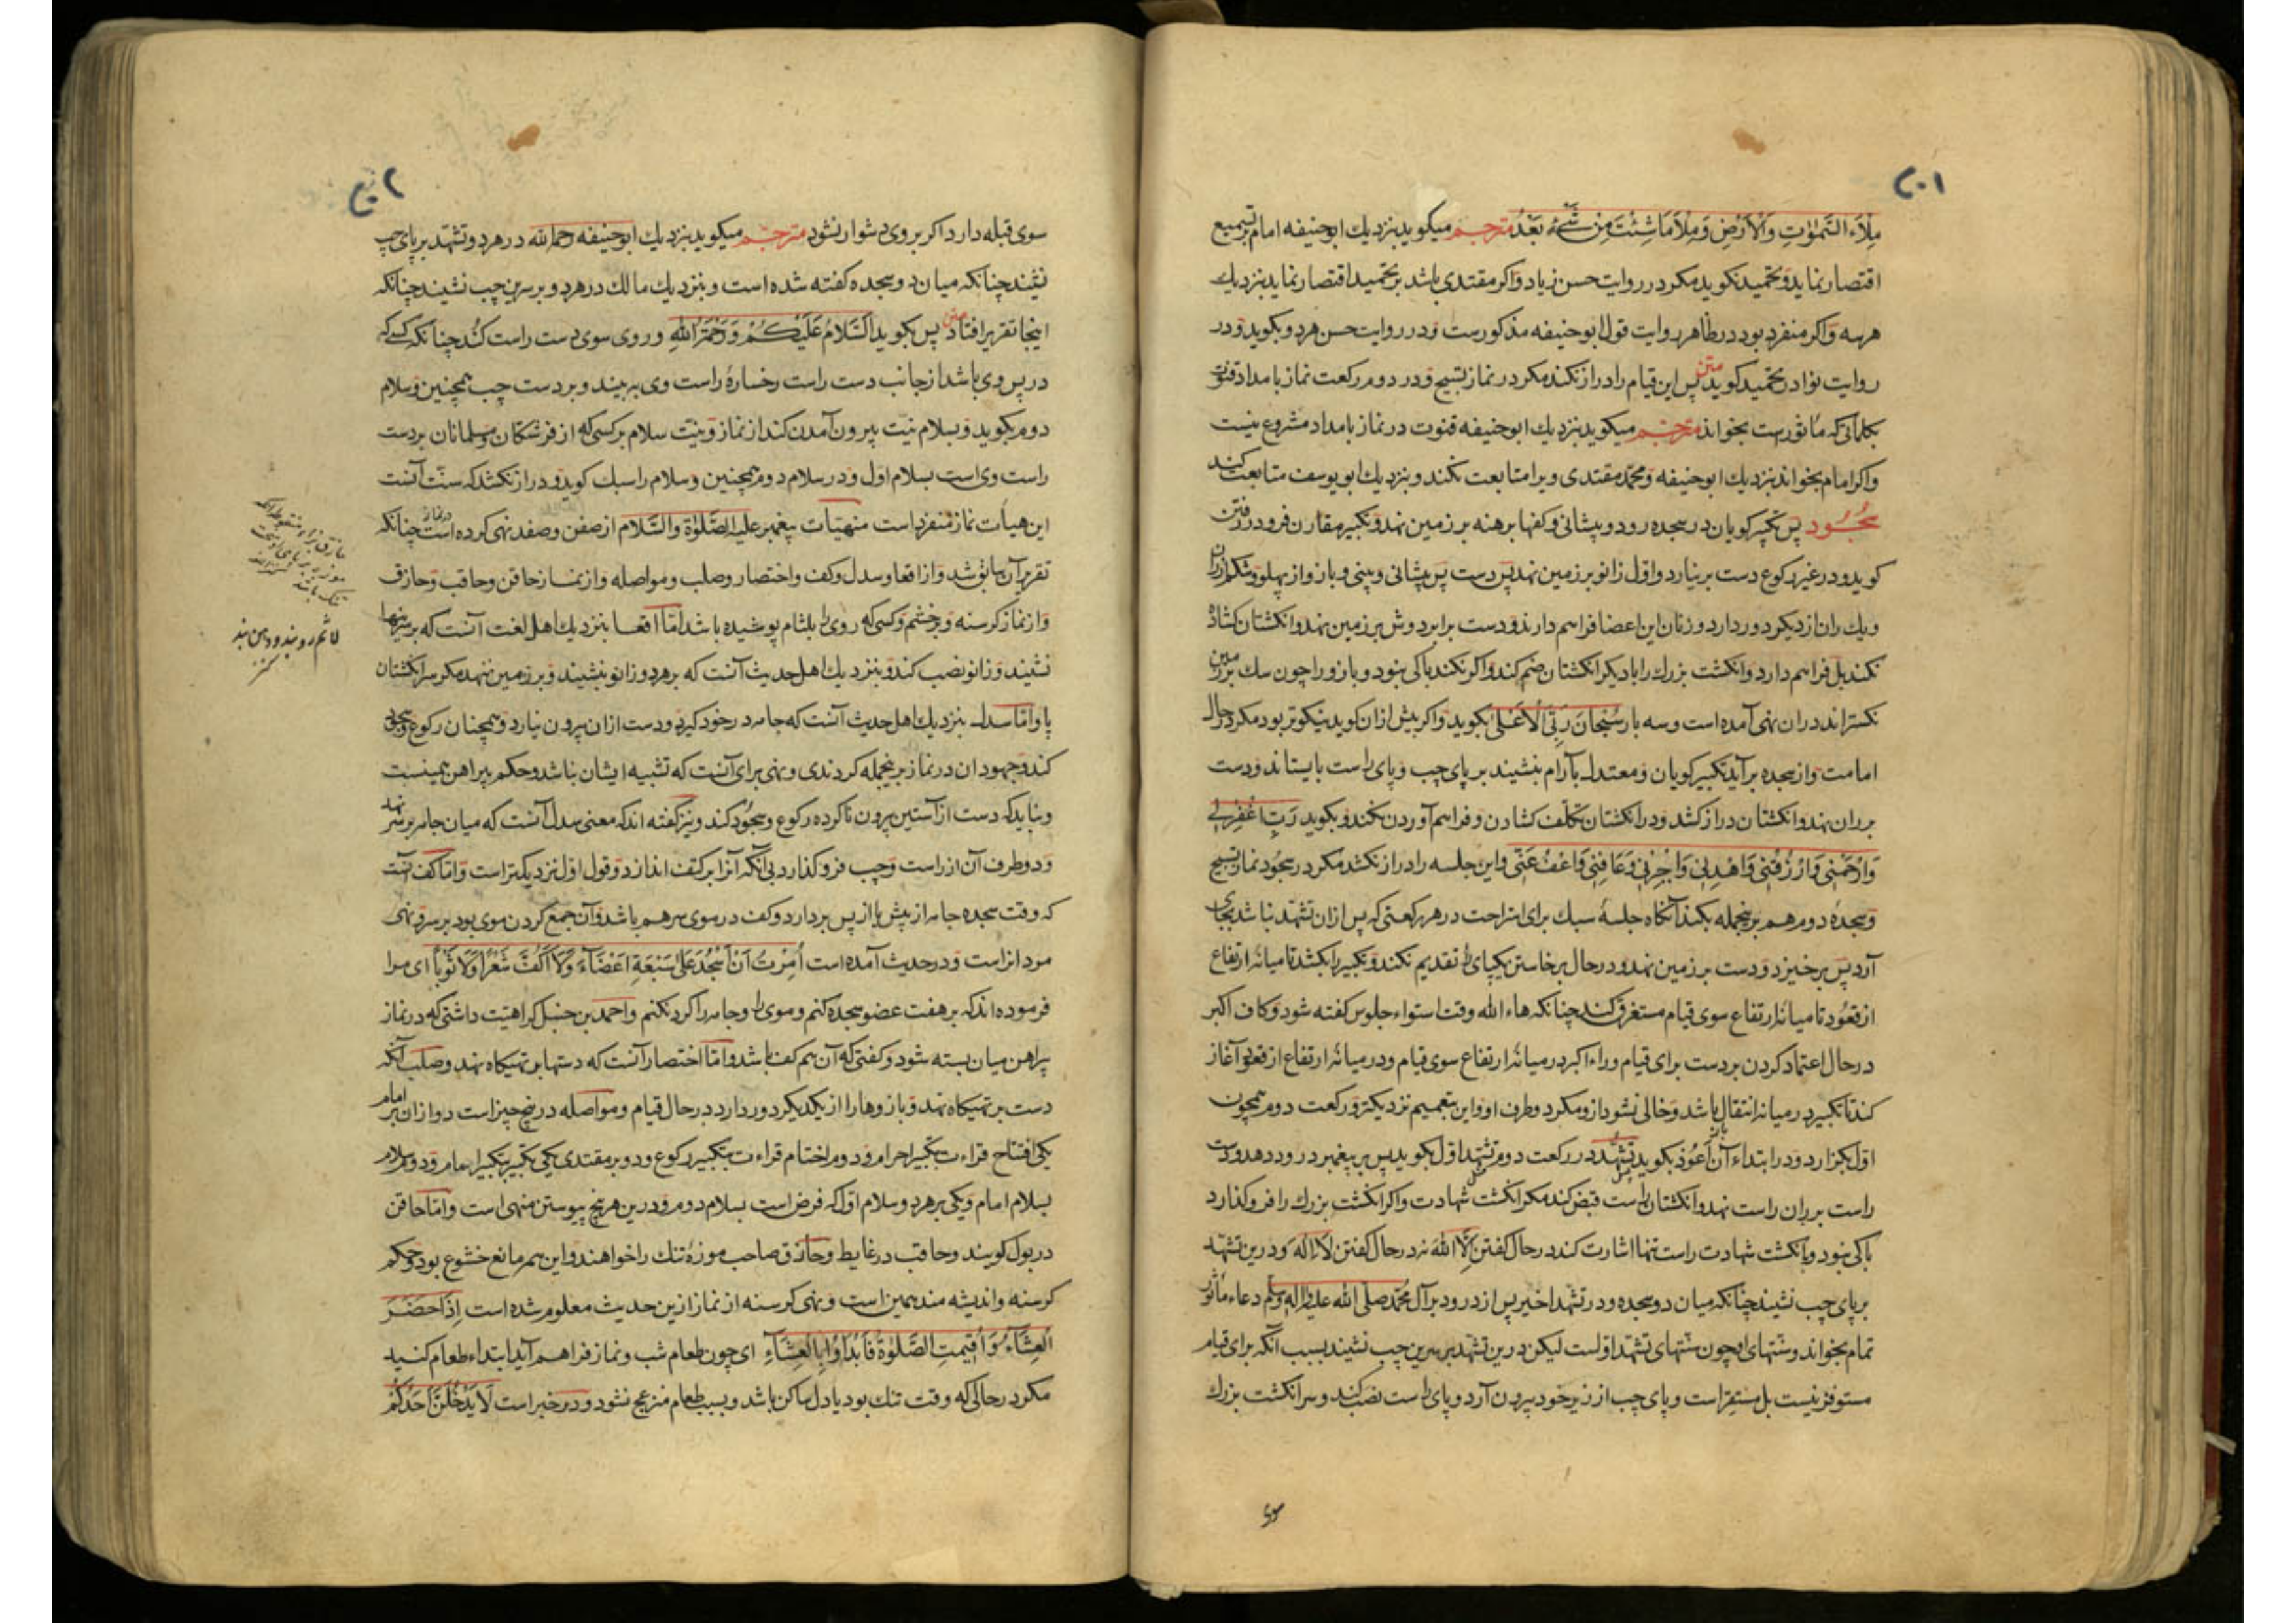 ۲۰۱
ملاء السموات والارض وملأ ما شئت من شیء بعد مترجم میکوید بنزدیک ابوحنیفه امام بر تسمیع
اقتصار نماید و تحمید نکوید مکر در روایت حسن زیاد و اکر مقتدی باشد بر تحمید اقتصار نماید بنزدیک
هر سه و اکر منفرد بود در ظاهر روایت قول ابوحنیفه مذکورست و در روایت حسن هر دو بکوید و در
روایت نوادر تحمید کوید متن پس این قیام را دراز نکند مکر در نماز تسبیح و در دوم رکعت نماز بامداد قنوت
بکلماتی که ماثورست بخواند مترجم میکوید بنزدیک ابوحنیفه قنوت در نماز بامداد مشروع نیست
واکر امام بخواند بنزدیک ابوحنیفه و محمد مقتدی ویرا متابعت نکند و بنزدیک ابویوسف متابعت کند
سجود پس تکبیر کویان در سجده رود و پیشانی و کفها برهنه بر زمین نهد و تکبیر مقارن فرود رفتن
کوید و در غیر رکوع دست بر نیارد و اول زانو بر زمین نهد پس دست پس پیشانی و بینی و بازو از پهلو و شکم از ران
و یک ران از دیکر دور دارد و زنان این اعضا فراهم دارند و دست برابر دوش بر زمین نهد و انکشتان کشاده
نکند بل فراهم دارد و انکشت بزرک را با دیکر انکشتان ضم کند و اکر نکند باکی نبود و بازو را چون سک بر زمین
نکستراند دران نهی آمده است و سه بار سبحان ربی الاعلی بکوید و اکر بیش ازان کوید نیکوتر بود مکر در حال
امامت و از سجده برآید تکبیر کویان و معتدل بآرام بنشیند بر پای چپ و پای راست بایستاند و دست
بر ران نهد و انکشتان دراز کشد و در انکشتان تکلف کشادن و فراهم آوردن نکند و بکوید رب اغفرلی
وارحمنی وارزقنی واهدنی واجبرنی وعافنی واعف عنی واین جلسه را دراز نکشد مکر در سجود نماز تسبیح
وسجده دوم هم برینجمله بکند آنکاه جلسه سبک برای استراحت در هر رکعتی که پس ازان تشهد نباشد بجای
آرد پس برخیزد و دست بر زمین نهد و در حال برخاستن یکپای را تقدیم نکند و تکبیر را بکشد تا میانه ارتفاع
از قعود تا میانه ارتفاع سوی قیام مستغرق کند چنانکه هاء الله وقت استواء جلوس کفته شود و کاف اکبر
در حال اعتماد کردن بر دست برای قیام و راء اکبر در میانه ارتفاع سوی قیام و در میانه ارتفاع از قعود آغاز
کند تا تکبیر در میانه انتقال باشد و خالی نشود ازو مکر دو طرف او و این بتعمیم نزدیکتر و رکعت دوم همچون
اول بکزارد و در ابتداء آن اعوذ بکوید تشهد در رکعت دوم تشهد اول بکوید پس بر پیغمبر درود دهد و دست
راست بر ران راست نهد و انکشتان راست قبض کند مکر انکشت شهادت و اکر انکشت بزرک را فرو کذارد
باکی نبود و بانکشت شهادت راست تنها اشارت کند در حال کفتن الا الله نه در حال کفتن لا اله و درین تشهد
بر پای چپ نشیند چنانکه میان دو سجده و در تشهد اخیر پس از درود بر آل محمد صلی الله علیه واله وسلم دعاء ماثور
تمام بخواند و سنتهای او چون سنتهای تشهد اولست لیکن درین تشهد بر سرین چپ نشیند بسبب آنکه برای قیام
مستوفز نیست بل مستقرّ است و پای چپ از زیر خود بیرون آرد و پای راست نصب کند و سر انکشت بزرک
سوی
۲۰۲
سوی قبله دارد اکر بر وی دشوار نشود مترجم میکوید بنزدیک ابوحنیفه رحمه الله در هر دو تشهد بر پای چپ
نشیند چنانکه میان دو سجده کفته شده است و بنزدیک مالک در هر دو بر سرین چپ نشیند چنانکه
اینجا تقریر افتاد متن پس بکوید السلام علیکم ورحمة الله و روی سوی دست راست کند چنانکه کسی که
در پس وی باشد از جانب دست راست رخساره راست وی ببیند و بر دست چپ همچنین و سلام
دوم بکوید و بسلام نیت بیرون آمدن کند از نماز و نیت سلام بر کسی که از فرشتکان و مسلمانان بر دست
راست وی است بسلام اول و در سلام دوم همچنین و سلام را سبک کوید و دراز نکشد که سنت آنست
این هیأت نماز منفرد است منهیات پیغمبر علیه الصلوة والسلام از صفن و صفد نهی کرده است در نماز چنانکه
تقریر آن سابق شد و از اقعا و سدل و کف و اختصار و صلب و مواصله و از نماز حاقن و حاقب و حازق
و از نماز کرسنه و پرخشم و کسی که روی را بلثام پوشیده باشد اما اقعا بنزدیک اهل لغت آنست که بر سرینها
نشیند و زانو نصب کند و بنزدیک اهل حدیث آنست که بر هر دو زانو بنشیند و بر زمین ننهد مکر سر انکشتان
پا و اما سدل بنزدیک اهل حدیث آنست که جامه در خود کیرد و دست ازان بیرون نیارد و همچنان رکوع و سجود
کند و جهودان در نماز برینجمله کردندی و نهی برای آنست که تشبیه ایشان نباشد و حکم پیراهن همینست
و نباید که دست از آستین بیرون ناکرده رکوع و سجود کند و نیز کفته اند که معنی سدل آنست که میان جامه بر سر نهد
و دو طرف آن از راست و چپ فرو کذارد بی آنکه آنرا بر کتف اندازد و قول اول نزدیکتر است و اما کف آنست
که وقت سجده جامه از پیش یا از پس بردارد و کف در موی سر هم باشد و آن جمع کردن موی بود بر سر و نهی
مردانراست و در حدیث آمده است امرت ان اسجد علی سبعة اعضاء ولا اکف شعرا ولا ثوبا ای مرا
فرموده اند که بر هفت عضو سجده کنم و موی را و جامه را کرد نکنم و احمد بن حنبل کراهیت داشتی که در نماز
پیراهن میان بسته شود و کفتی که آن هم کف باشد و اما اختصار آنست که دستها بر تهیکاه نهد و صلب آنکه
دست بر تهیکاه نهد و بازوها را از یکدیکر دور دارد در حال قیام و مواصله در پنج چیز است دو ازان بر امام
یکی افتتاح قراءت بتکبیر احرام و دوم اختتام قراءت بتکبیر رکوع و دو بر مقتدی یکی تکبیر بتکبیر امام و دوم سلام
بسلام امام و یکی بر هر دو سلام اول که فرض است بسلام دوم و درین هر پنج پیوستن منهی است و اما حاقن
در بول کویند و حاقب در غایط و حازق صاحب موزه تنک را خواهند و این همه مانع خشوع بود و حکم
کرسنه و اندیشه مند همین است و نهی کرسنه از نماز ازین حدیث معلوم شده است اذا حضر
العشاء واقیمت الصلوة فابدأوا بالعشاء ای چون طعام شب و نماز فراهم آید ابتداء طعام کنید
مکر در حالی که وقت تنک بود یا دل ساکن باشد و بسبب طعام منزعج نشود و در خبر است لا یدخلن احدکم